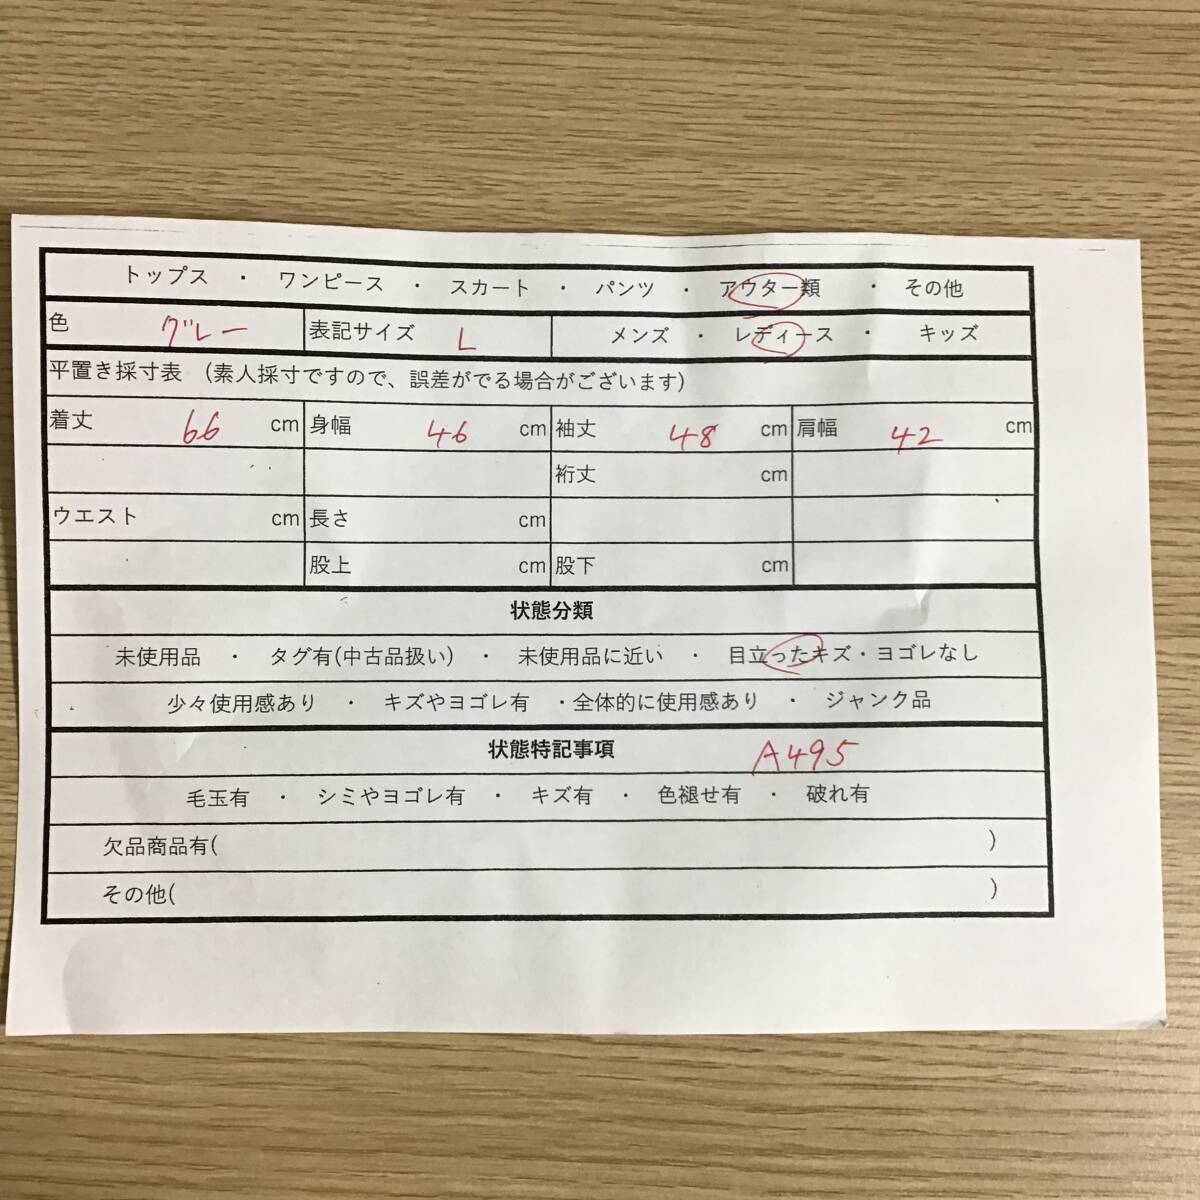 トップス ・ ワンピース ・ スカート ・ パンツ ・ アウター類 ・ その他
色 グレー 表記サイズ L メンズ ・ レディース ・ キッズ
平置き採寸表 (素人採寸ですので、誤差がでる場合がございます)
着丈 66 cm 身幅 46 cm 袖丈 48 cm 肩幅 42 cm
裄丈 cm
ウエスト cm 長さ cm
股上 cm 股下 cm
状態分類
未使用品 ・ タグ有(中古品扱い) ・ 未使用品に近い ・ 目立ったキズ・ヨゴレなし
少々使用感あり ・ キズやヨゴレ有 ・全体的に使用感あり ・ ジャンク品
状態特記事項 A495
毛玉有 ・ シミやヨゴレ有 ・ キズ有 ・ 色褪せ有 ・ 破れ有
欠品商品有( )
その他( )